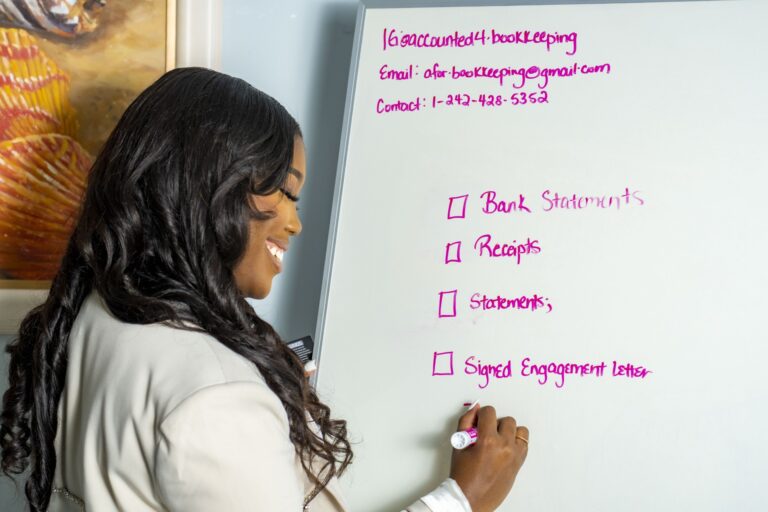 IG:@accounted4.bookkeeping
Email: afor.bookkeeping@gmail.com
Contact: 1-242-428-5352
Bank Statements
Receipts
Statements;
Signed Engagement Letter